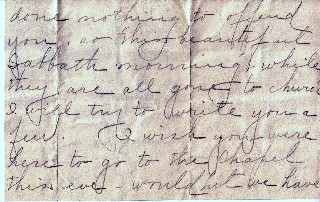 done nothing to offend
you, so this beautiful
Sabbath morning while
they are all gone to church
I will try to write you a
few. I wish you were
here to go to the Chapel
this eve - wouldn't we have